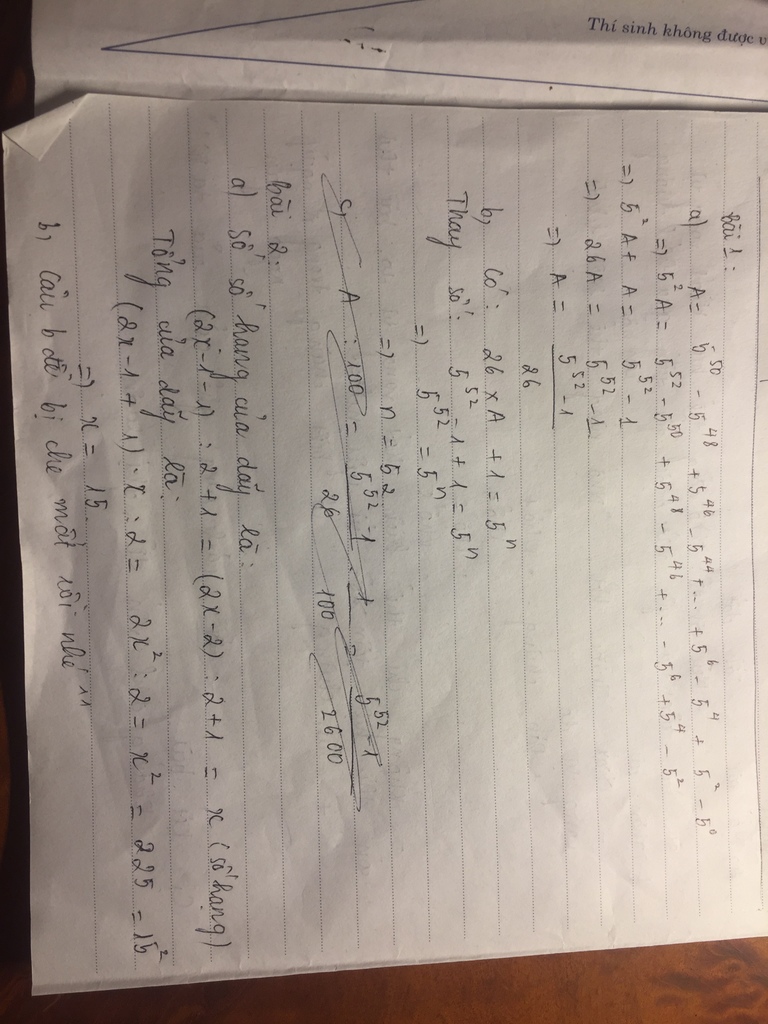 Thí sinh không được v
Bài 1:
a) A = 5^50 - 5^48 + 5^46 - 5^44 + ... + 5^6 - 5^4 + 5^2 - 5^0
=) 5^2 A = 5^52 - 5^50 + 5^48 - 5^46 + ... - 5^6 + 5^4 - 5^2
=) 5^2 A + A = 5^52 - 1
=) 26A = 5^52 - 1
=) A = (5^52 - 1)/26
b, Có: 26 x A + 1 = 5^n
Thay số: 5^52 - 1 + 1 = 5^n
=) 5^52 = 5^n
=) n = 52
bài 2:
a) số số hạng của dãy là:
(2x-1-1) : 2+1 = (2x-2) : 2+1 = x (số hạng)
Tổng của dãy là:
(2x-1+1) . x : 2 = 2x^2 : 2 = x^2 = 225 = 15^2
=) x = 15.
b, câu b đề bị che mất rồi nhé